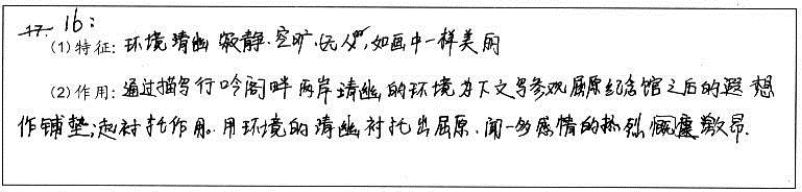 17. 16:
(1)特征: 环境清幽 寂静.空旷.无人,如画中一样美丽
(2)作用: 通过描写行吟阁畔两岸清幽的环境为下文写参观屈原纪念馆之后的遐想
作铺垫;起衬托作用。用环境的清幽衬托出屈原、闻一多感情的热烈慷慨激昂.